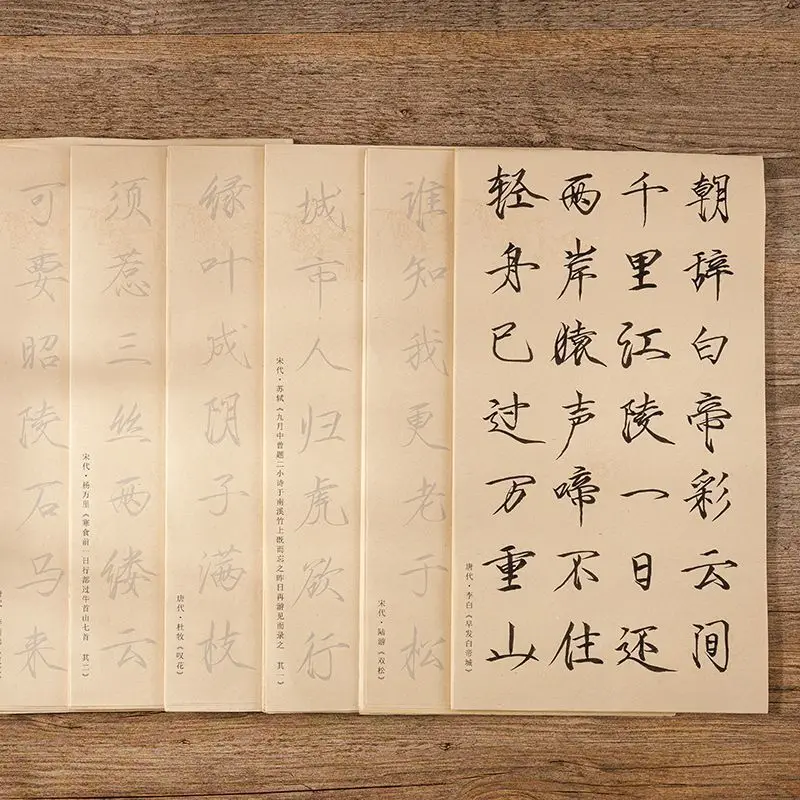 朝辞白帝彩云间
千里江陵一日还
两岸猿声啼不住
轻身已过万重山
唐代·李白《早发白帝城》
谁知我更老于松
宋代·陆游《双松》
城市人归虎欲行
宋代·苏轼《九月中曾题二小诗于南溪竹上既而忘之昨日再游见而录之 其一》
绿叶成阴子满枝
唐代·杜牧《叹花》
须惹三丝两缕云
宋代·杨万里《寒食前一日行部过牛首山七首 其二》
可要昭陵石马来